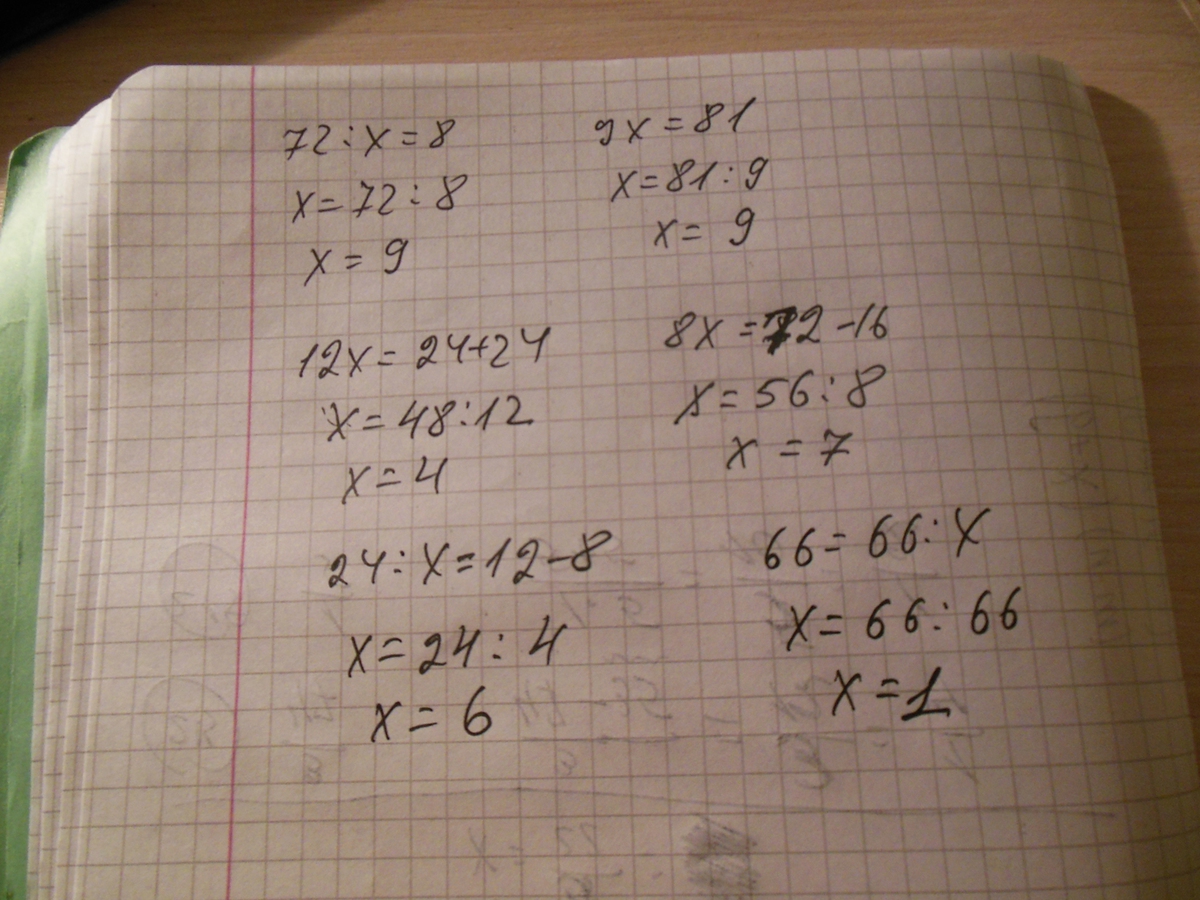 72:x=8
x=72:8
x=9
9x=81
x=81:9
x=9
12x=24+24
x=48:12
x=4
8x=72-16
x=56:8
x=7
24:x=12-8
x=24:4
x=6
66=66:x
x=66:66
x=1